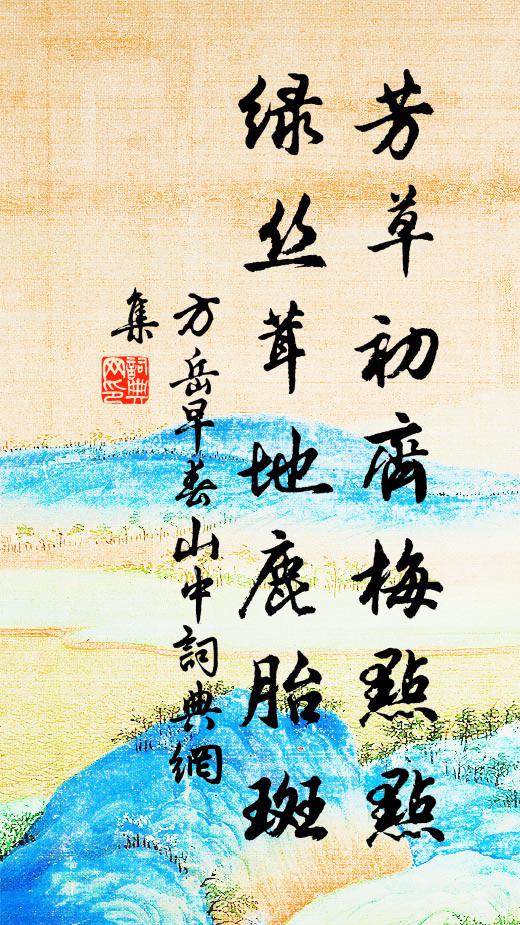 芳草初齊梅點點
綠丝茸地鹿胎斑
方岳早春山中詞典網
集
詞典
网印